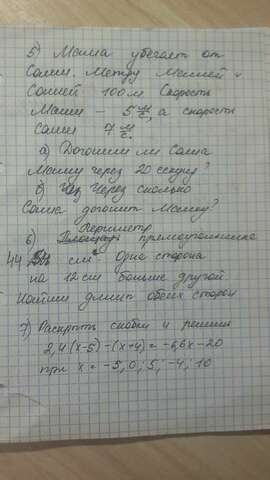 5) Маша убегает от
Саши. Между Машей и
Сашей 100 м Скорость
Маши – 5 м/с, а скорость
Саши 7 м/с.
а) Догонит ли Саша
Машу через 20 секунд?
б) Через сколько
Саша догонит Машу?
6) Периметр прямоугольника
44 см. Одна сторона
на 12 см больше другой.
Найти длины обеих сторон
7) Раскрыть скобки и решить
2,4(x-5)-(x+4)=-6,6x-20
при x=-5; 0; 5; -4; 10